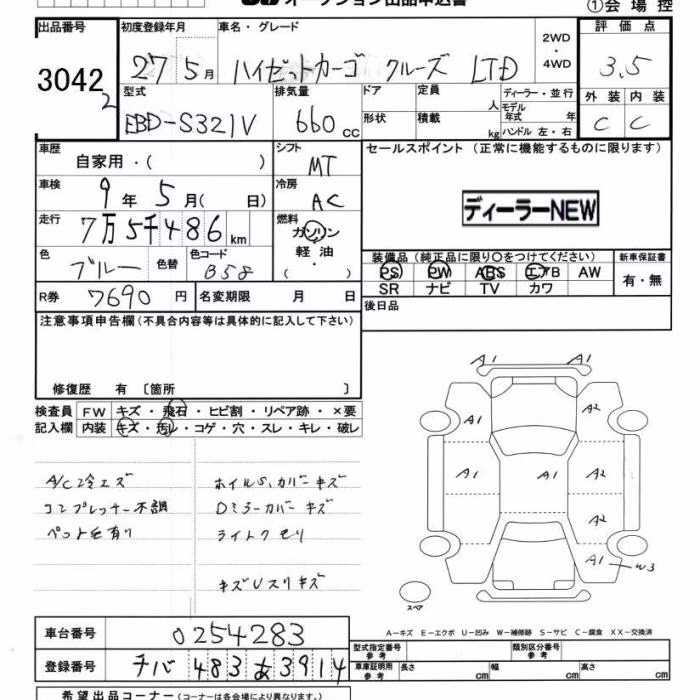 オークション出品申込書
①会場控
出品番号 初度登録年月 車名・グレード 2WD・4WD 評価点
3042 2 27 5月 ハイゼットカーゴ クルーズ LTD 3.5
型式 排気量 ドア 定員 人 ディーラー・並行 外装 内装
EBD-S321V 660cc 形状 積載 kg モデル年式 年 ハンドル 左・右 C C
車歴 自家用・( ) シフト MT セールスポイント(正常に機能するものに限ります)
車検 9年5月( 日) 冷房 AC ディーラーNEW
走行 7万5千486km 燃料 ガソリン
軽油
( ・ )
色 ブルー 色替 色コード B58 装備品(純正品に限り○をつけてください) 新車保証書
PS PW ABS エアB AW 有・無
R券 7690円 名変期限 月 日 SR ナビ TV カワ
後日品
注意事項申告欄(不具合内容等は具体的に記入して下さい)
修復歴 有 〔箇所 〕
検査員 FW キズ・飛石・ヒビ割・リペア跡・×要
記入欄 内装 キズ・汚レ・コゲ・穴・スレ・キレ・破レ
A/C冷エズ ホイルS、カバーキズ
コンプレッサー不調 Dミラーカバーキズ
ペット毛有り ライトクモリ
キズUスリキズ
A1 A1
A1 A2
A1 A1 A2
A2
A1 W3
スペア
A-キズ E-エクボ U-凹み W-補修跡 S-サビ C-腐食 XX-交換済
車台番号 0254283 型式指定番号 参考 類別区分番号 参考
登録番号 チバ 483 あ3914 車庫証明用 参考 長さ cm 幅 cm 高さ cm
希望出品コーナー(コーナーは各会場により異なります。)